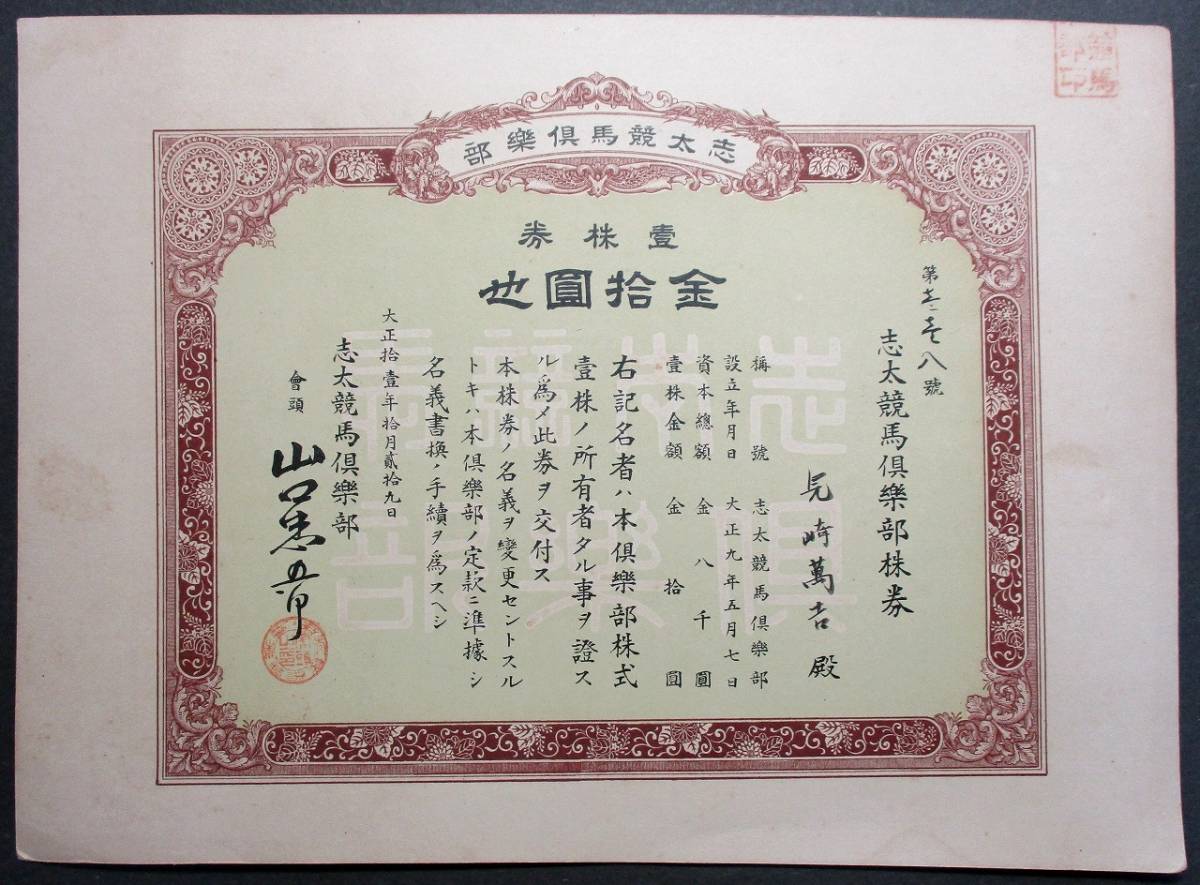 志太競馬倶樂部
壹株券
金拾圓也
第 八號
志太競馬倶樂部株券
見崎萬吉殿
稱號 志太競馬倶樂部
設立年月日 大正九年五月七日
資本總額 金八千圓
壹株金額 金拾圓
右記名者ハ本倶樂部株式
壹株ノ所有者タル事ヲ證ス
ル爲メ此券ヲ交付ス
本株券ノ名義ヲ變更セントスル
トキハ本倶樂部ノ定款ニ準據シ
名義書換ノ手續ヲ爲スヘシ
大正拾壹年拾月貳拾九日
志太競馬倶樂部
會頭 山口忠五郎